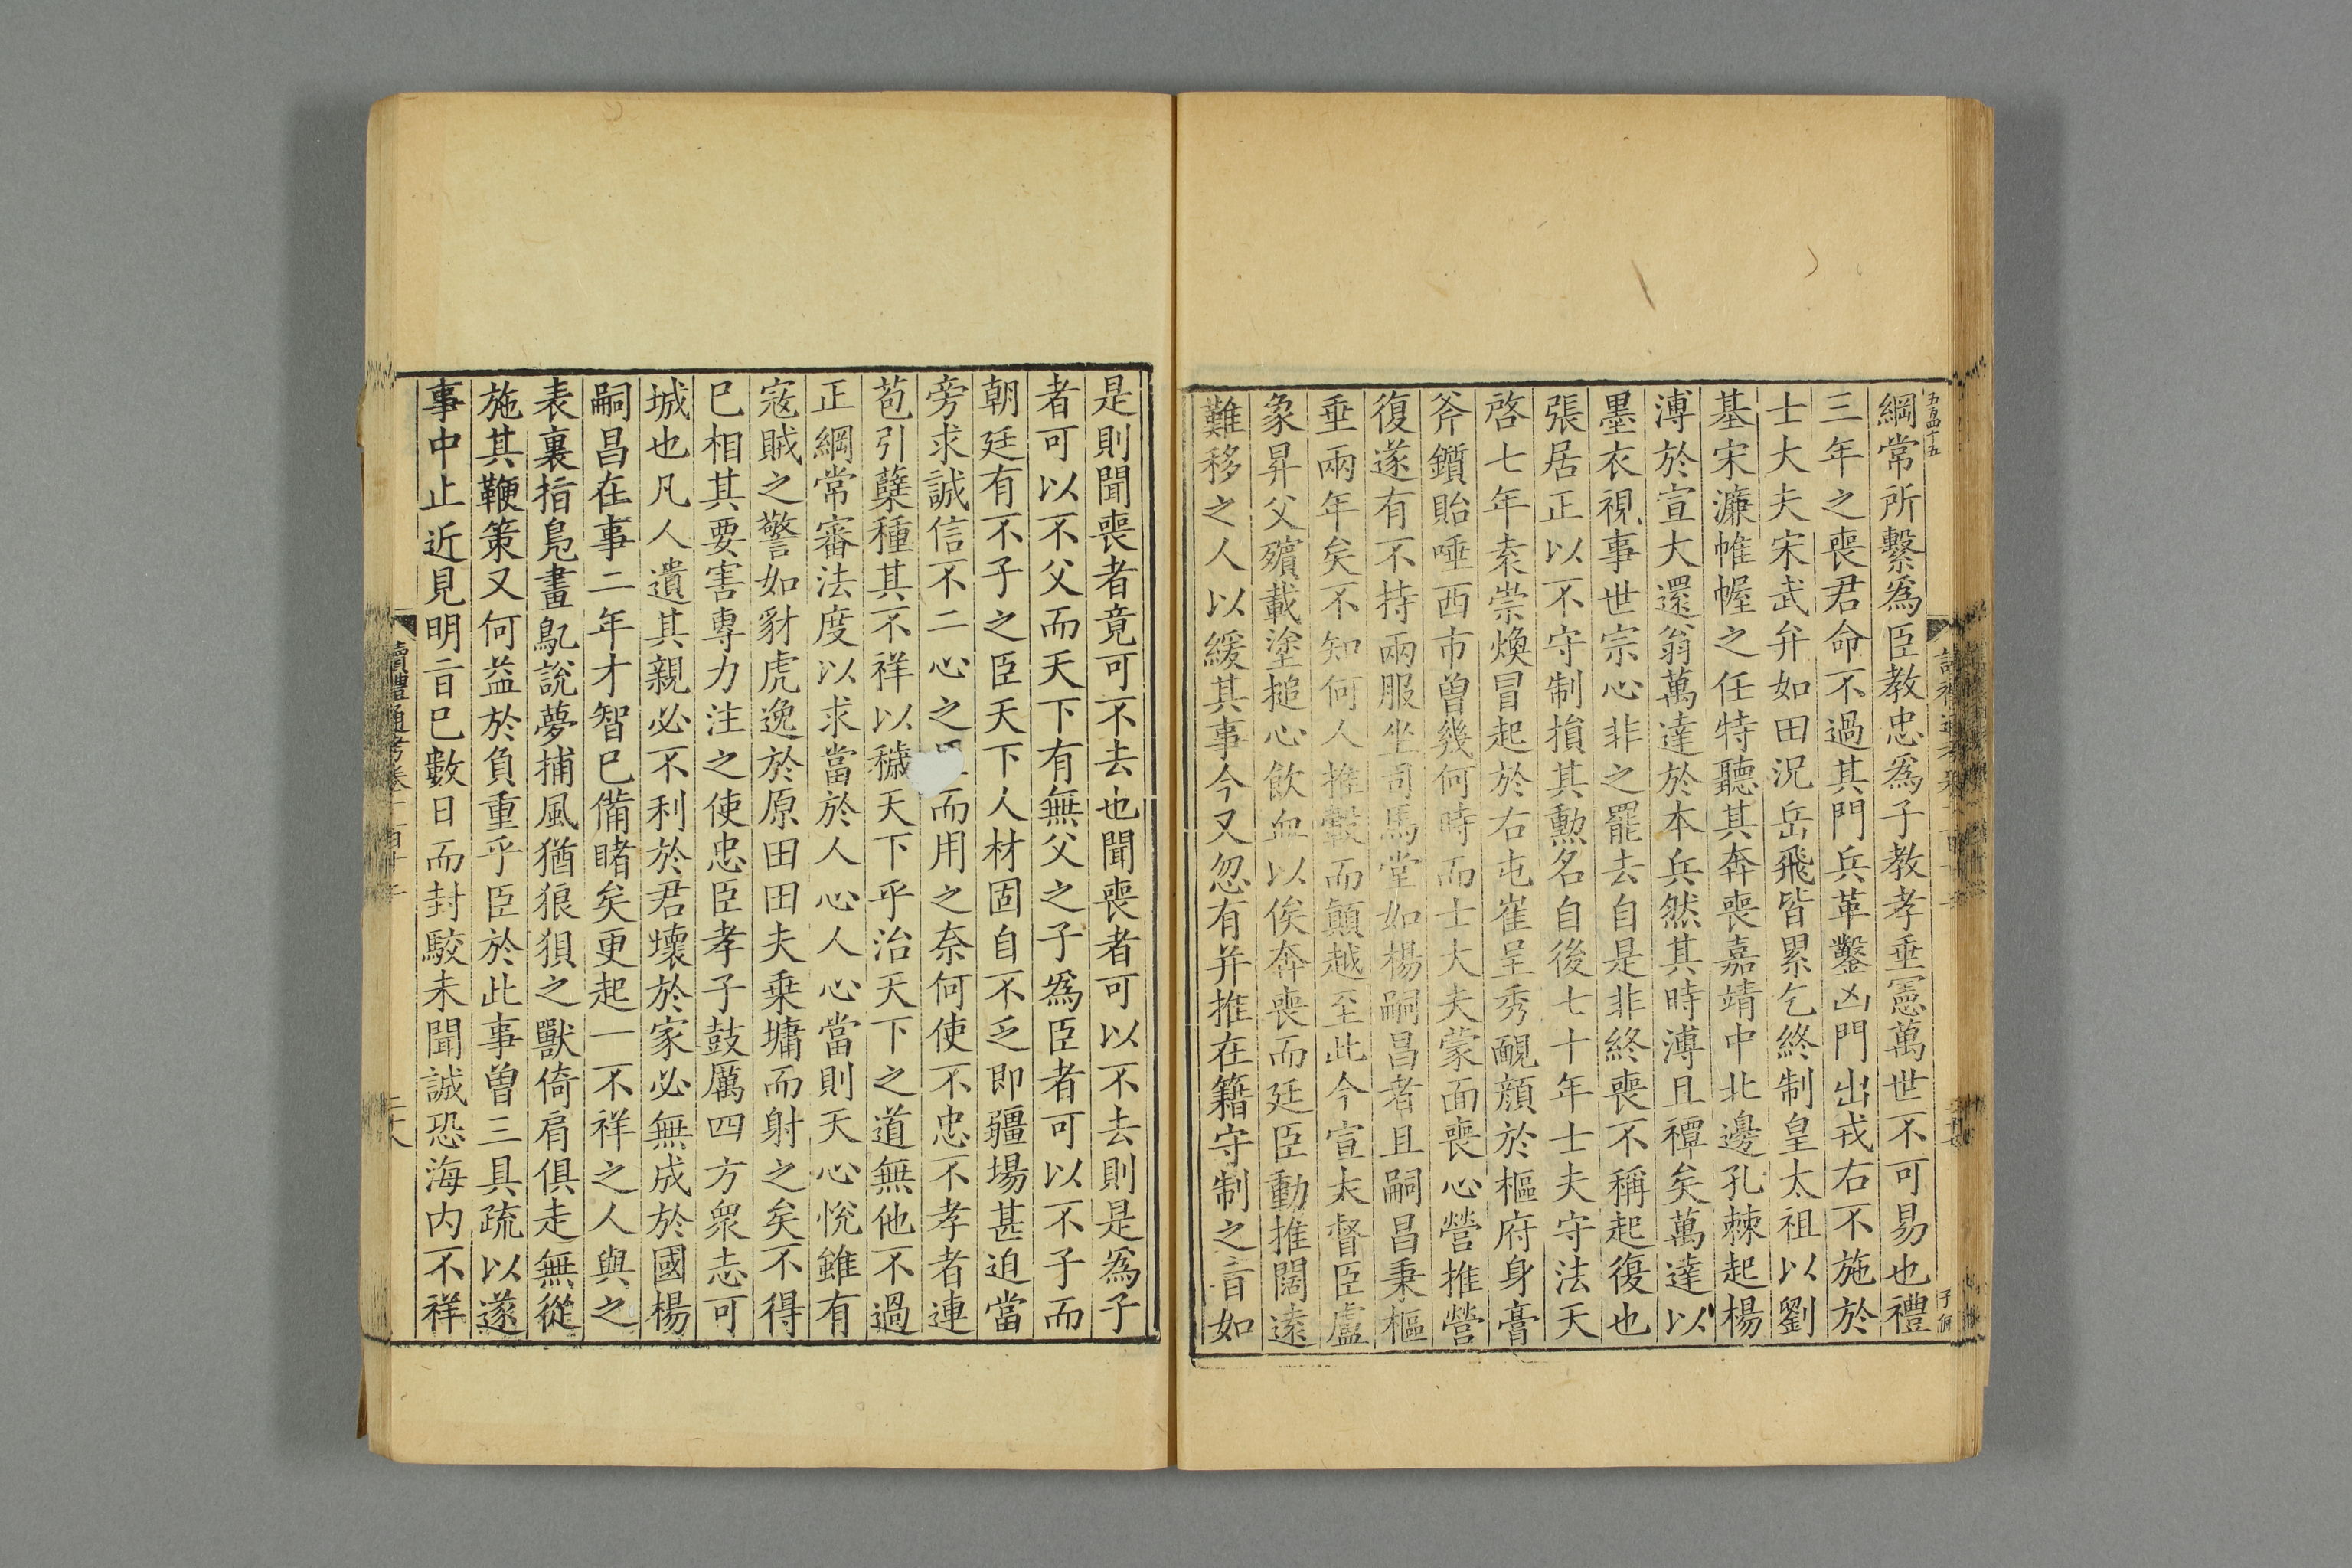 五百四十五
綱常所繫爲臣教忠爲子教孝垂憲萬世不可易也禮
三年之喪君命不過其門兵革鑿凶門出戎右不施於
士大夫宋武弁如田況岳飛皆累乞終制皇太祖以劉
基宋濂帷幄之任特聽其奔喪嘉靖中北邊孔棘起楊
溥於宣大還翁萬達於本兵然其時溥且禫矣萬達以
墨衣視事世宗心非之罷去自是非終喪不稱起復也
張居正以不守制損其勲名自後七十年士夫守法天
啓七年袁崇煥冒起於右屯崔呈秀覥顏於樞府身膏
斧鑕貽唾西市曾幾何時而士大夫蒙面喪心營推營
復遂有不持兩服坐司馬堂如楊嗣昌者且嗣昌秉樞
垂兩年矣不知何人推轂而顛越至此今宣大督臣盧
象昇父殯載塗搥心飲血以俟奔喪而廷臣動推闊遠
難移之人以緩其事今又忽有并推在籍守制之旨如
是則聞喪者竟可不去也聞喪者可以不去則是爲子
者可以不父而天下有無父之子爲臣者可以不子而
朝廷有不子之臣天下人材固自不乏即疆場甚迫當
旁求誠信不二心之而用之奈何使不忠不孝者連
苞引蘖種其不祥以穢天下乎治天下之道無他不過
正綱常審法度以求當於人心人心當則天心悅雖有
寇賊之警如豺虎逸於原田田夫乗墉而射之矣不得
已相其要害專力注之使忠臣孝子鼓厲四方衆志可
城也凡人遺其親必不利於君壞於家必無成於國楊
嗣昌在事二年才智已備睹矣更起一不祥之人與之
表裏指鳧畫鳦說夢捕風猶狼狽之獸倚肩俱走無從
施其鞭策又何益於負重乎臣於此事曾三具疏以遂
事中止近見明旨已數日而封駮未聞誠恐海内不祥
讀禮通考卷一百十